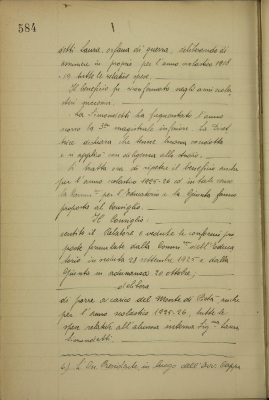 584
detti Laura, orfana di guerra, deliberando di
tenerla in proprio per l'anno scolastico 1918
-19 tutte le relative spese.
Il beneficio fu riconfermato negli anni scola-
stici successivi.
La Simonetti ha frequentato l'anno
scorso la 3ª magistrale inferiore. La Diret-
trice dichiara che tenne buona condotta
e si applicò con diligenza allo studio.
Si tratta ora di ripetere il beneficio anche
per l'anno scolastico 1925-26 ed in tale senso
la Comm.ne per l'Educatorio e la Giunta fanno
proposte al Consiglio.
Il Consiglio
sentito il Relatore e vedute le conformi pro
poste formulate dalla Comm.ne dell'Educa
torio in seduta 28 settembre 1925 e dalla
Giunta in adunanza 20 ottobre,
delibera
di porre a carico del Monte di Pietà anche
per l'anno scolastico 1925-26, tutte le
spese relative all'alunna interna Sig.na Laura
Simonetti.
6) L'On. Presidente, in luogo dell'Avv.